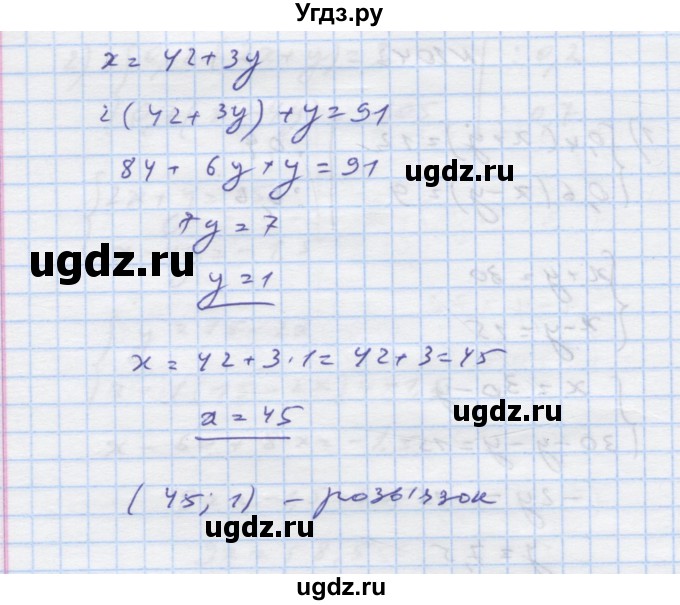 Угдз.ру
x = 42 + 3y
2(42 + 3y) + y = 91
84 + 6y + y = 91
ugdz.ru
7y = 7
ugdz.ru
y = 1
x = 42 + 3·1 = 42 + 3 = 45
x = 45
ugdz.ru
(45; 1) – розв'язок
ugdz.ru
ugdz.ru